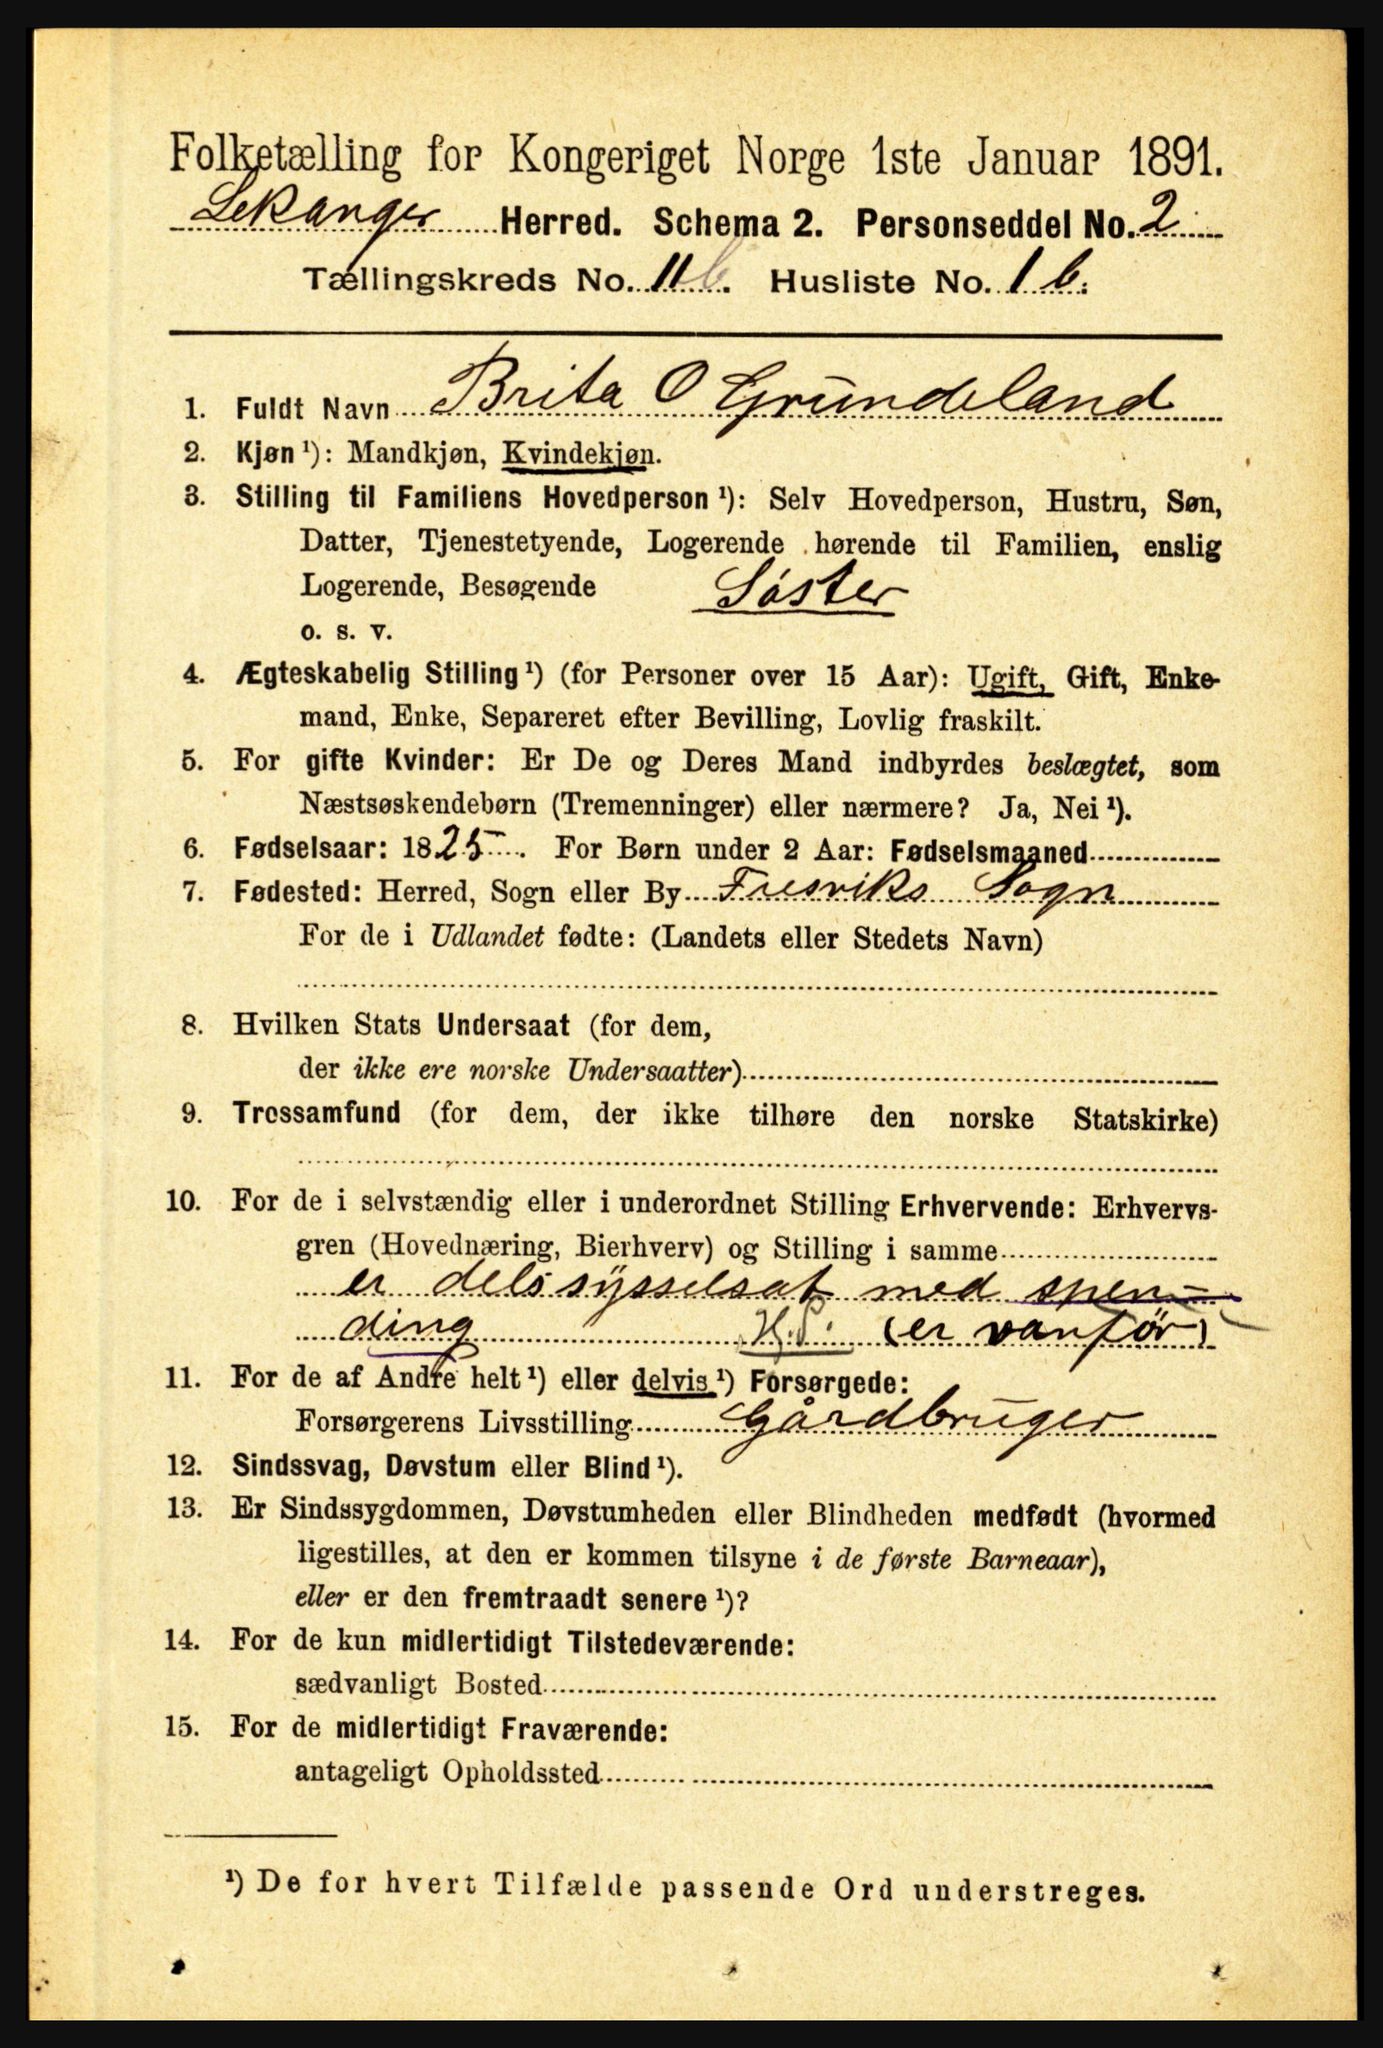 Folketælling for Kongeriget Norge 1ste Januar 1891.
Lekanger Herred. Schema 2. Personseddel No. 2
Tællingskreds No. 11 b. Husliste No. 1 b.
1. Fuldt Navn Brita O Grundeland
2. Kjøn ¹): Mandkjøn, Kvindekjøn.
3. Stilling til Familiens Hovedperson ¹): Selv Hovedperson, Hustru, Søn,
Datter, Tjenestetyende, Logerende hørende til Familien, enslig
Logerende, Besøgende Søster
o. s. v.
4. Ægteskabelig Stilling ¹) (for Personer over 15 Aar): Ugift, Gift, Enke-
mand, Enke, Separeret efter Bevilling, Lovlig fraskilt.
5. For gifte Kvinder: Er De og Deres Mand indbyrdes beslægtet, som
Næstsøskendebørn (Tremenninger) eller nærmere? Ja, Nei ¹).
6. Fødselsaar: 1825. For Børn under 2 Aar: Fødselsmaaned
7. Fødested: Herred, Sogn eller By Fresviks Sogn
For de i Udlandet fødte: (Landets eller Stedets Navn)
8. Hvilken Stats Undersaat (for dem,
der ikke ere norske Undersaatter)
9. Trossamfund (for dem, der ikke tilhøre den norske Statskirke)
10. For de i selvstændig eller i underordnet Stilling Erhvervende: Erhvervs-
gren (Hovednæring, Bierhverv) og Stilling i samme
er dels sysselsat med spen-
ding H.S. (er vanfør)
11. For de af Andre helt ¹) eller delvis ¹) Forsørgede:
Forsørgerens Livsstilling Gårdbruger
12. Sindssvag, Døvstum eller Blind ¹).
13. Er Sindssygdommen, Døvstumheden eller Blindheden medfødt (hvormed
ligestilles, at den er kommen tilsyne i de første Barneaar),
eller er den fremtraadt senere ¹)?
14. For de kun midlertidigt Tilstedeværende:
sædvanligt Bosted
15. For de midlertidigt Fraværende:
antageligt Opholdssted
¹) De for hvert Tilfælde passende Ord understreges.